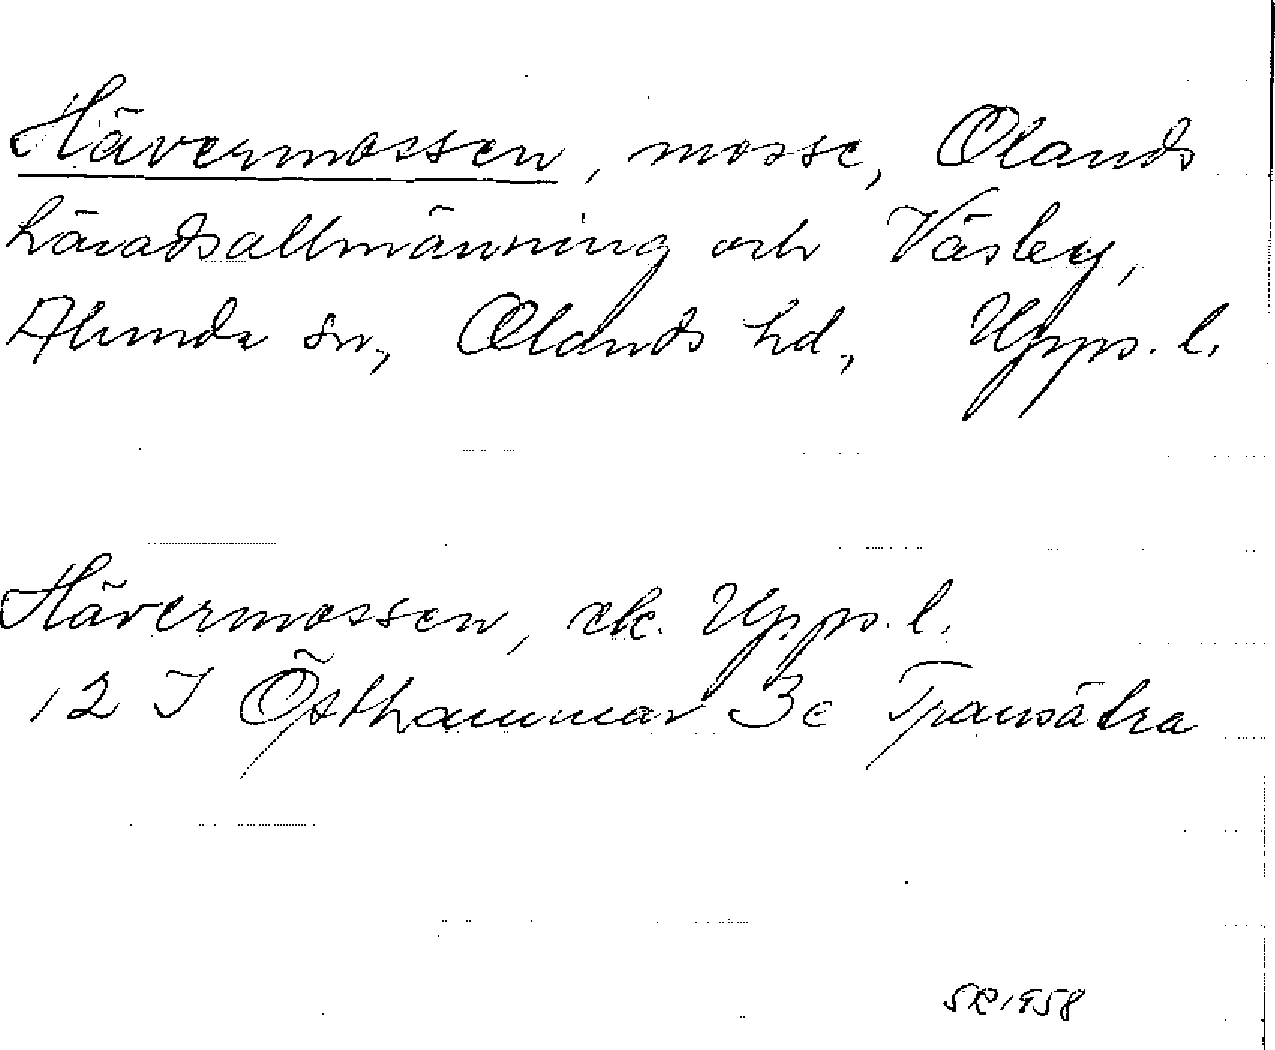 Hävermossen, mosse, Olands
häradsallmänning och Väsby,
Alunda sn, Olands hd, Upps. l.
Hävermossen, ek. Upps. l.
12 I Östhammar 3e Pransätra
SR 1958